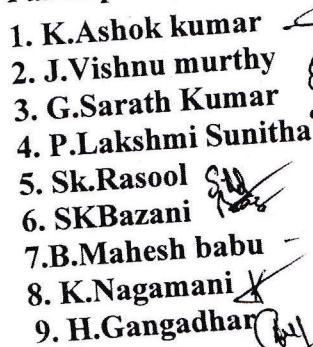 1. K.Ashok kumar
2. J.Vishnu murthy
3. G.Sarath Kumar
4. P.Lakshmi Sunitha
5. Sk.Rasool
6. SKBazani
7.B.Mahesh babu
8. K.Nagamani
9. H.Gangadhar